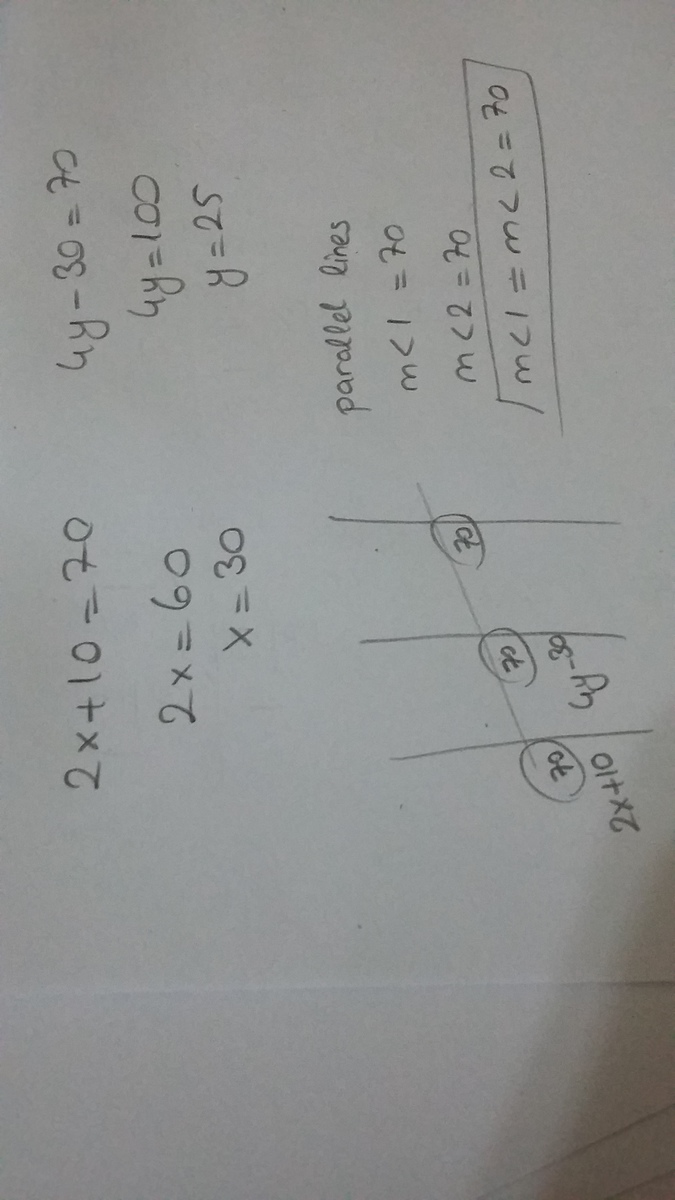 2x+10=70
2x=60
x=30
4y-30=70
4y=100
y=25
70
70
4y-30
70
2x+10
parallel lines
m<1=70
m<2=70
m<1=m<2=70